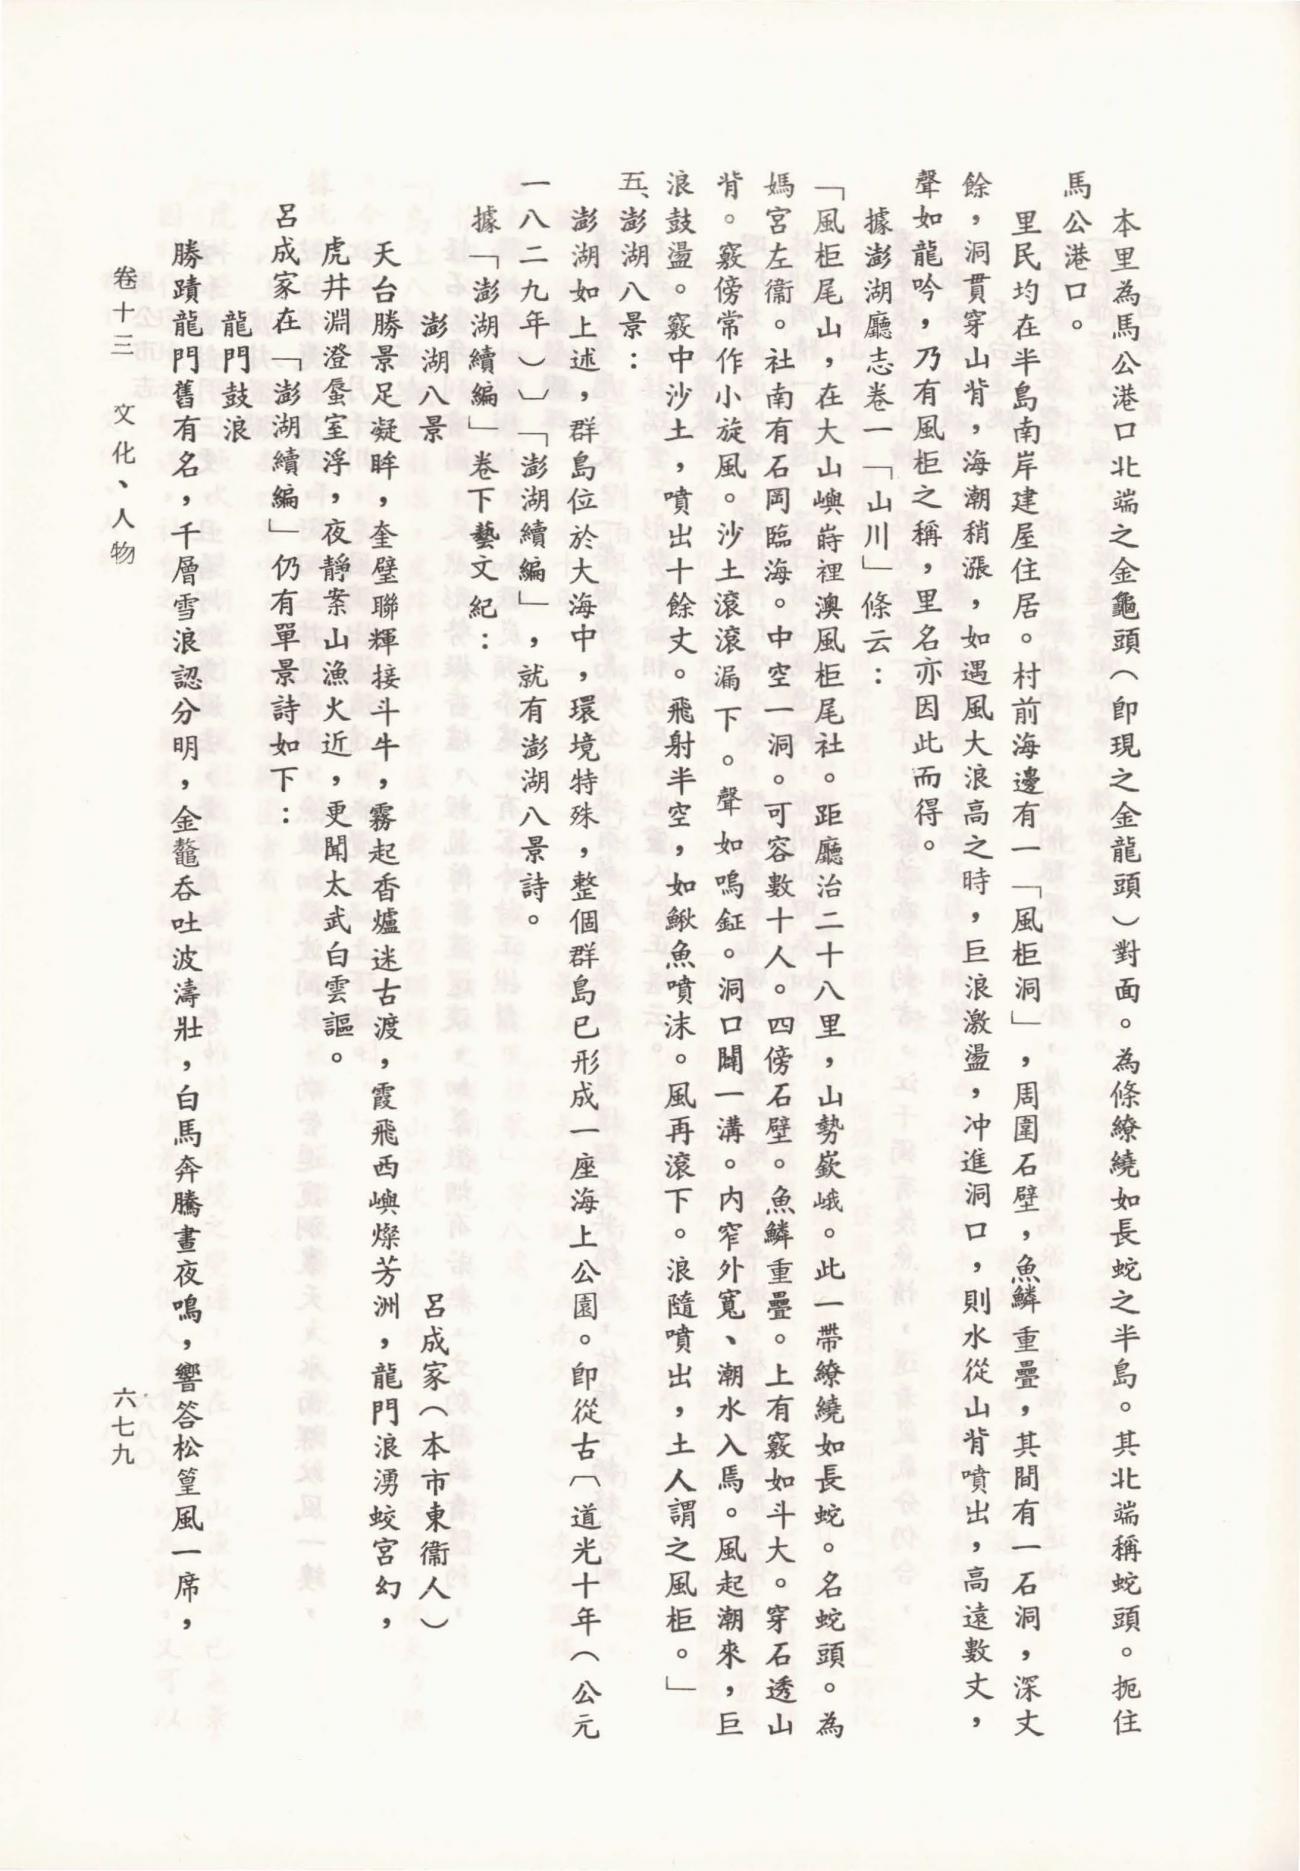 本里為馬公港口北端之金龜頭（卽現之金龍頭）對面。為條繚繞如長蛇之半島。其北端稱蛇頭。扼住
馬公港口。
里民均在半島南岸建屋住居。村前海邊有一「風柜洞」，周圍石壁，魚鱗重疊，其間有一石洞，深丈
餘，洞貫穿山背，海潮稍漲，如遇風大浪高之時，巨浪激盪，冲進洞口，則水從山背噴出，高遠數丈，
聲如龍吟，乃有風柜之稱，里名亦因此而得。
據澎湖廳志卷一「山川」條云：
「風柜尾山，在大山嶼嵵裡澳風柜尾社。距廳治二十八里，山勢嶔峨。此一帶繚繞如長蛇。名蛇頭。為
媽宮左衞。社南有石岡臨海。中空一洞。可容數十人。四傍石壁。魚鱗重疊。上有竅如斗大。穿石透山
背。竅傍常作小旋風。沙土滾滾漏下。聲如鳴鉦。洞口闢一溝。內窄外寬、潮水入焉。風起潮來，巨
浪鼓盪。竅中沙土，噴出十餘丈。飛射半空，如鰍魚噴沫。風再滾下。浪隨噴出，土人謂之風柜。」
五、澎湖八景：
澎湖如上述，群島位於大海中，環境特殊，整個群島已形成一座海上公園。卽從古〔道光十年（公元
一八二九年）〕「澎湖續編」，就有澎湖八景詩。
據「澎湖續編」卷下藝文紀：
澎湖八景　呂成家（本市東衞人）
天台勝景足凝眸，奎璧聯輝接斗牛，霧起香爐迷古渡，霞飛西嶼燦芳洲，龍門浪湧蛟宮幻，
虎井淵澄蜃室浮，夜靜案山漁火近，更聞太武白雲謳。
呂成家在「澎湖續編」仍有單景詩如下：
龍門鼓浪
勝蹟龍門舊有名，千層雪浪認分明，金鼇吞吐波濤壯，白馬奔騰晝夜鳴，響答松篁風一席，
卷十三　文化、人物
六七九